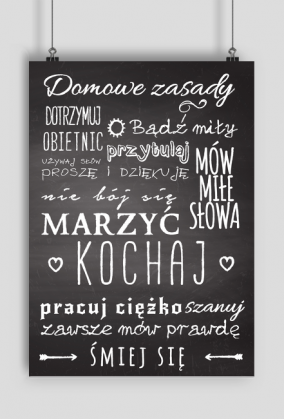 Domowe zasady
DOTRZYMUJ
OBIETNIC
Bądź miły
UŻYWAJ SŁÓW
PROSZĘ I DZIĘKUJĘ
przytulaj
MÓW
MIŁE
SŁOWA
nie bój się
MARZYĆ
KOCHAJ
pracuj ciężko szanuj
zawsze mów prawdę
ŚMIEJ SIĘ